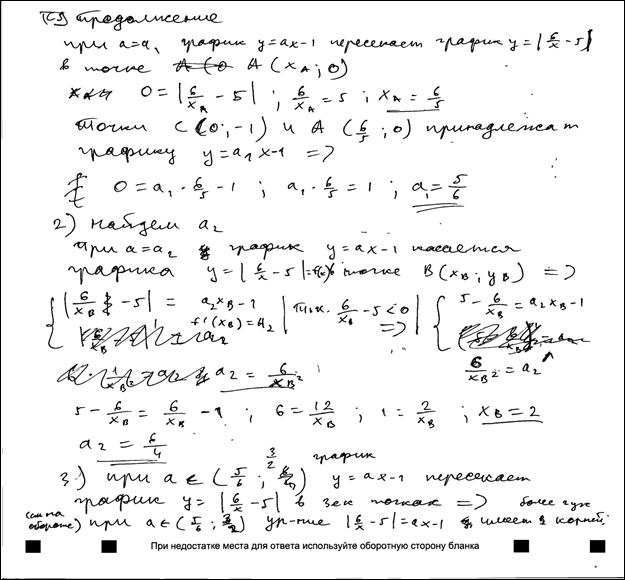 продолжение
при a=a₁ график y=ax-1 пересекает график y=|6/x -5|
в точке A(x_A;0)
0=|6/x_A -5| ; 6/x_A =5 ; x_A = 6/5
Точки C(0;-1) и A(6/5;0) принадлежат
графику y=a₁x-1 =>
0=a₁·6/5 -1 ; a₁·6/5 =1 ; a₁=5/6
2) найдем a₂
При a=a₂ график y=ax-1 касается
графика y=|6/x -5|=f(x) в точке B(x_B; y_B) =>
{ |6/x_B -5| = a₂x_B-1 | т.к. 6/x_B -5<0 | { 5-6/x_B=a₂x_B-1
f'(x_B)=a₂ =>
a₂=6/x_B² 6/x_B²=a₂
5-6/x_B=6/x_B -1 ; 6=12/x_B ; 1=2/x_B ; x_B=2
a₂=6/4
3) при a∈(5/6; 3/2) график y=ax-1 пересекает
график y=|6/x -5| в 3ех точках => более двух
(см на обороте) при a∈(5/6; 3/2) ур-ние |6/x -5|=ax-1 имеет корней
При недостатке места для ответа используйте оборотную сторону бланка